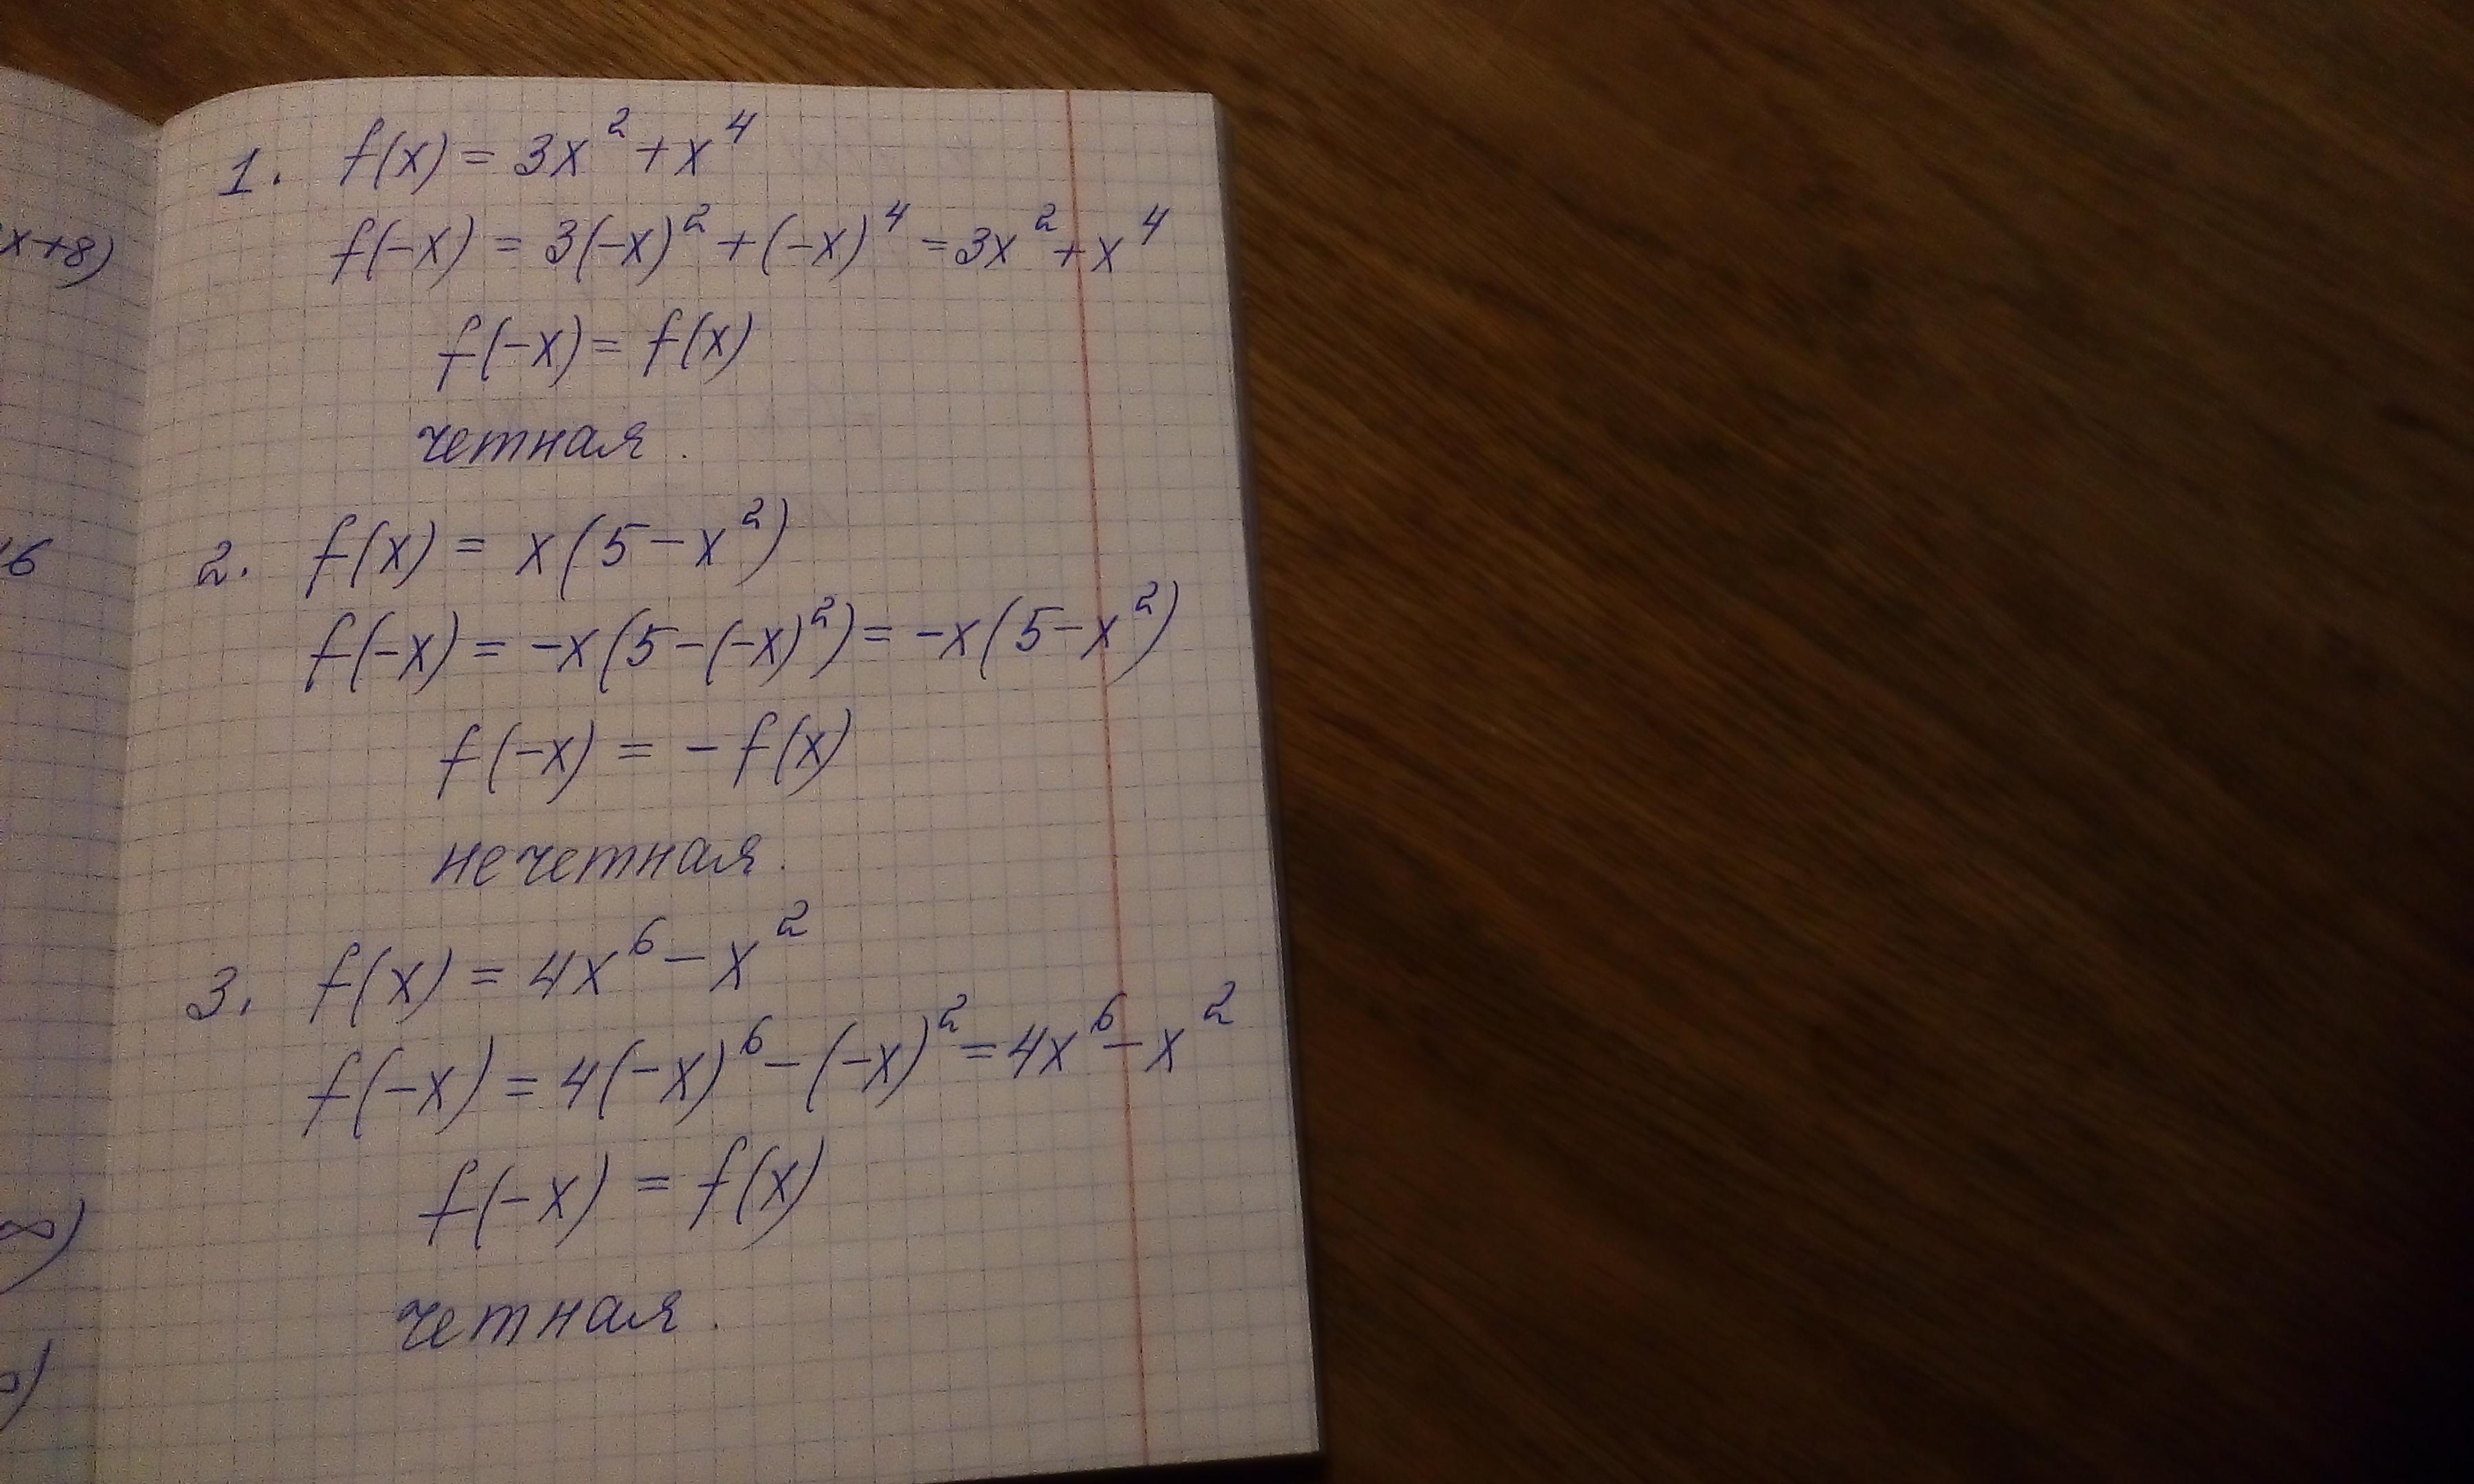 x+8)
6
∞)
1. f(x) = 3x² + x⁴
f(-x) = 3(-x)² + (-x)⁴ = 3x² + x⁴
f(-x) = f(x)
четная.
2. f(x) = x(5 - x²)
f(-x) = -x(5 - (-x)²) = -x(5 - x²)
f(-x) = - f(x)
нечетная.
3. f(x) = 4x⁶ - x²
f(-x) = 4(-x)⁶ - (-x)² = 4x⁶ - x²
f(-x) = f(x)
четная.